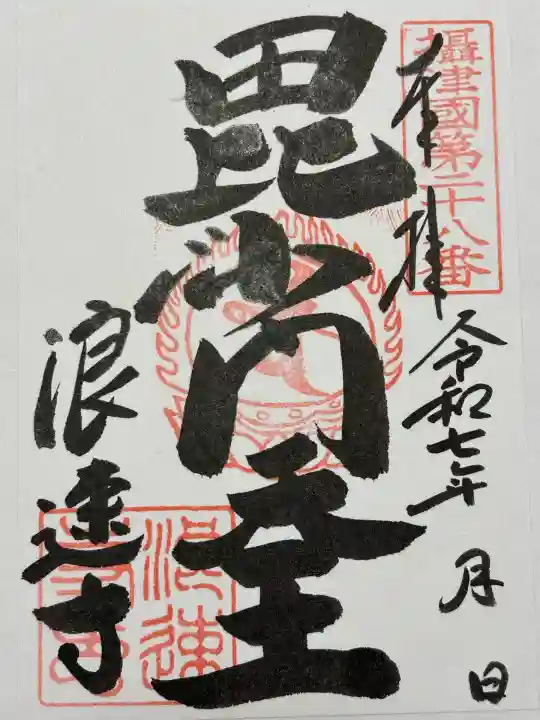 攝津國第二十八番
奉拝
令和七年 月 日
毘沙門天王
浪速寺
浪速
寺印